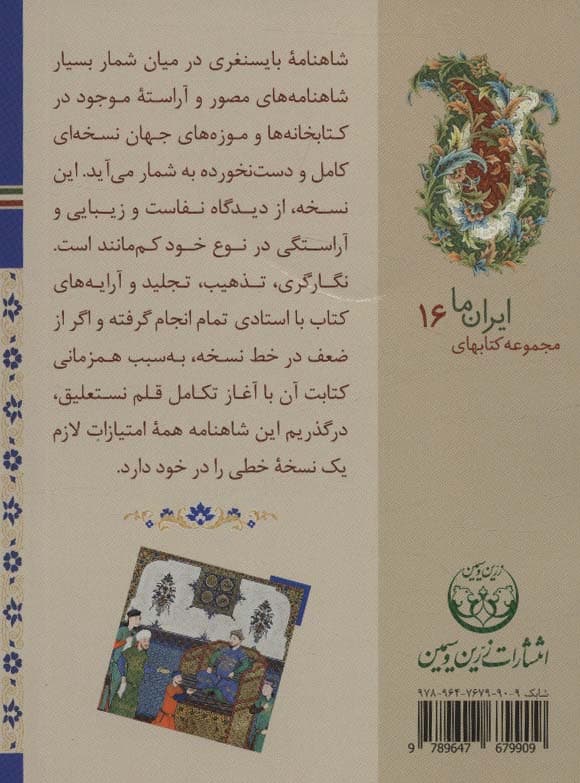 شاهنامهٔ بایسنغری در میان شمار بسیار
شاهنامه‌های مصور و آراستهٔ موجود در
کتابخانه‌ها و موزه‌های جهان نسخه‌ای
کامل و دست‌نخورده به شمار می‌آید. این
نسخه، از دیدگاه نفاست و زیبایی و
آراستگی در نوع خود کم‌مانند است.
نگارگری، تذهیب، تجلید و آرایه‌های
کتاب با استادی تمام انجام گرفته و اگر از
ضعف در خط نسخه، به‌سبب همزمانی
کتابت آن با آغاز تکامل قلم نستعلیق،
درگذریم این شاهنامه همهٔ امتیازات لازم
یک نسخهٔ خطی را در خود دارد.
ایران ما ۱۶
مجموعه کتابهای
زرین و سیمین
انتشارات زرین و سیمین
شابک ۹-۹۰-۷۶۷۹-۹۶۴-۹۷۸
9 789647 679909